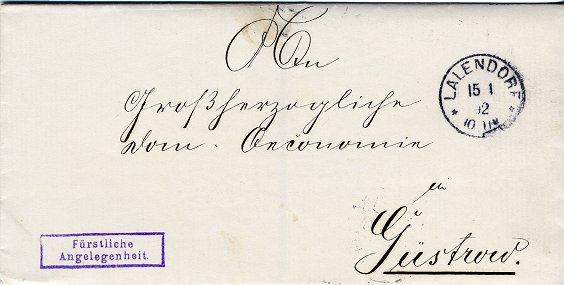 An
Großherzogliche
Dom. Oeconomie
in
Güstrow.
LALENDORF
15 1
92
Fürstliche
Angelegenheit.